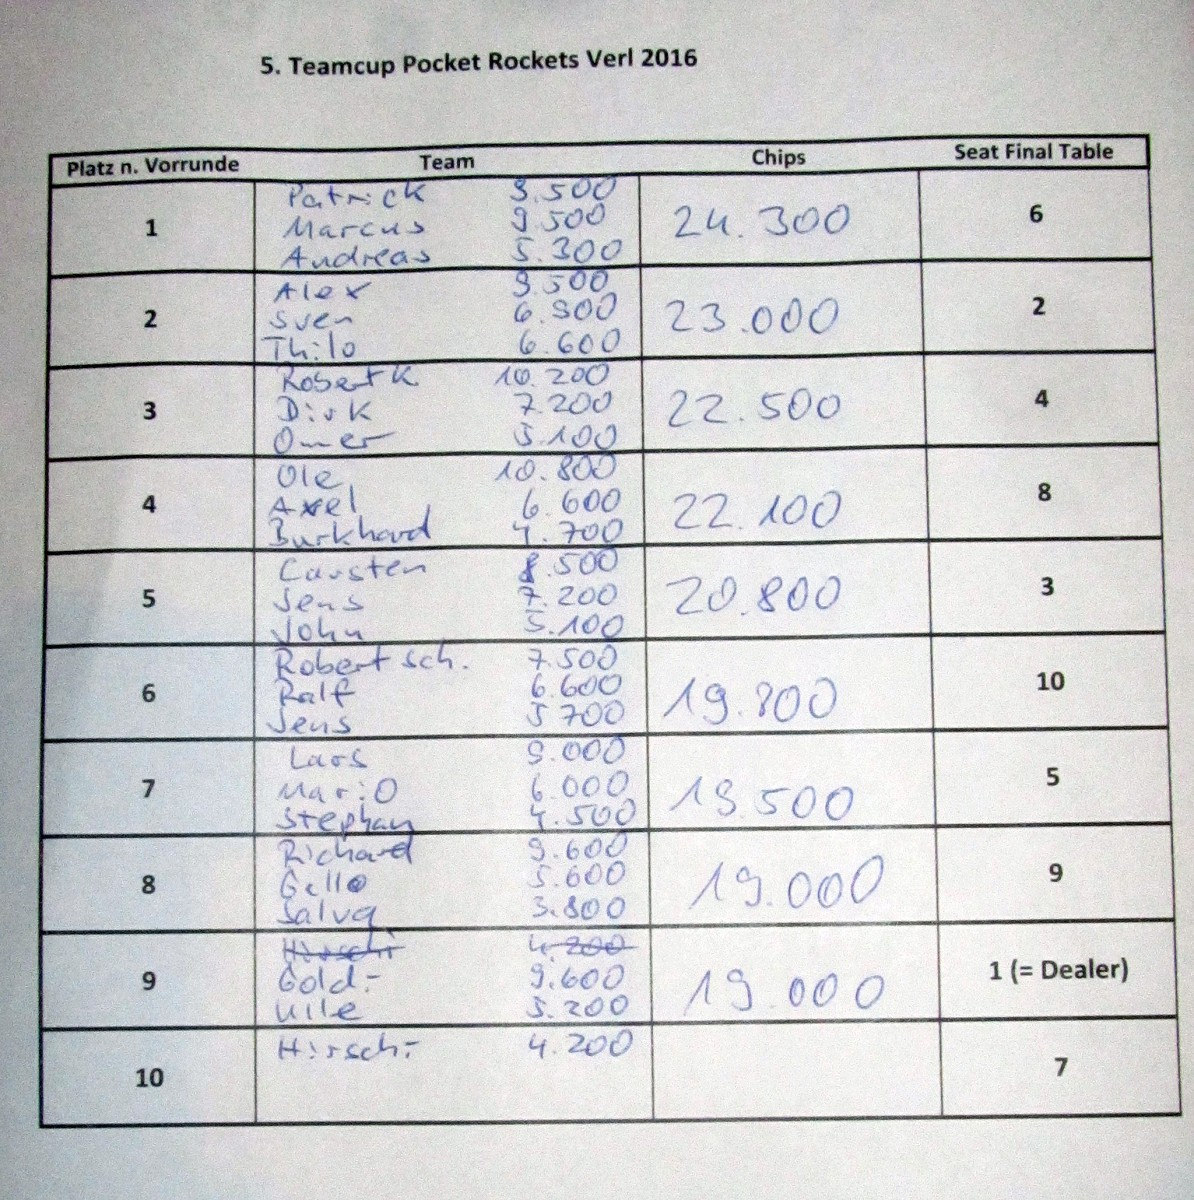 5. Teamcup Pocket Rockets Verl 2016
Platz n. Vorrunde Team Chips Seat Final Table
Patrick 9.500
1 Marcus 9.500 24.300 6
Andreas 5.300
Alex 9.500
2 Sven 6.900 23.000 2
Thilo 6.600
Robert K. 10.200
3 Dirk 7.200 22.500 4
Omer 5.100
Ole 10.800
4 Axel 6.600 22.100 8
Burkhard 4.700
Carsten 8.500
5 Jens 7.200 20.800 3
John 5.100
Robert Sch. 7.500
6 Ralf 6.600 19.800 10
Jens 5.700
Lars 9.000
7 Mario 6.000 19.500 5
Stephan 4.500
Richard 9.600
8 Gello 5.600 19.000 9
Salva 3.800
Hirschi 4.200
9 Goldi 9.600 19.000 1 (= Dealer)
Ulle 5.200
Hirschi 4.200
10 7